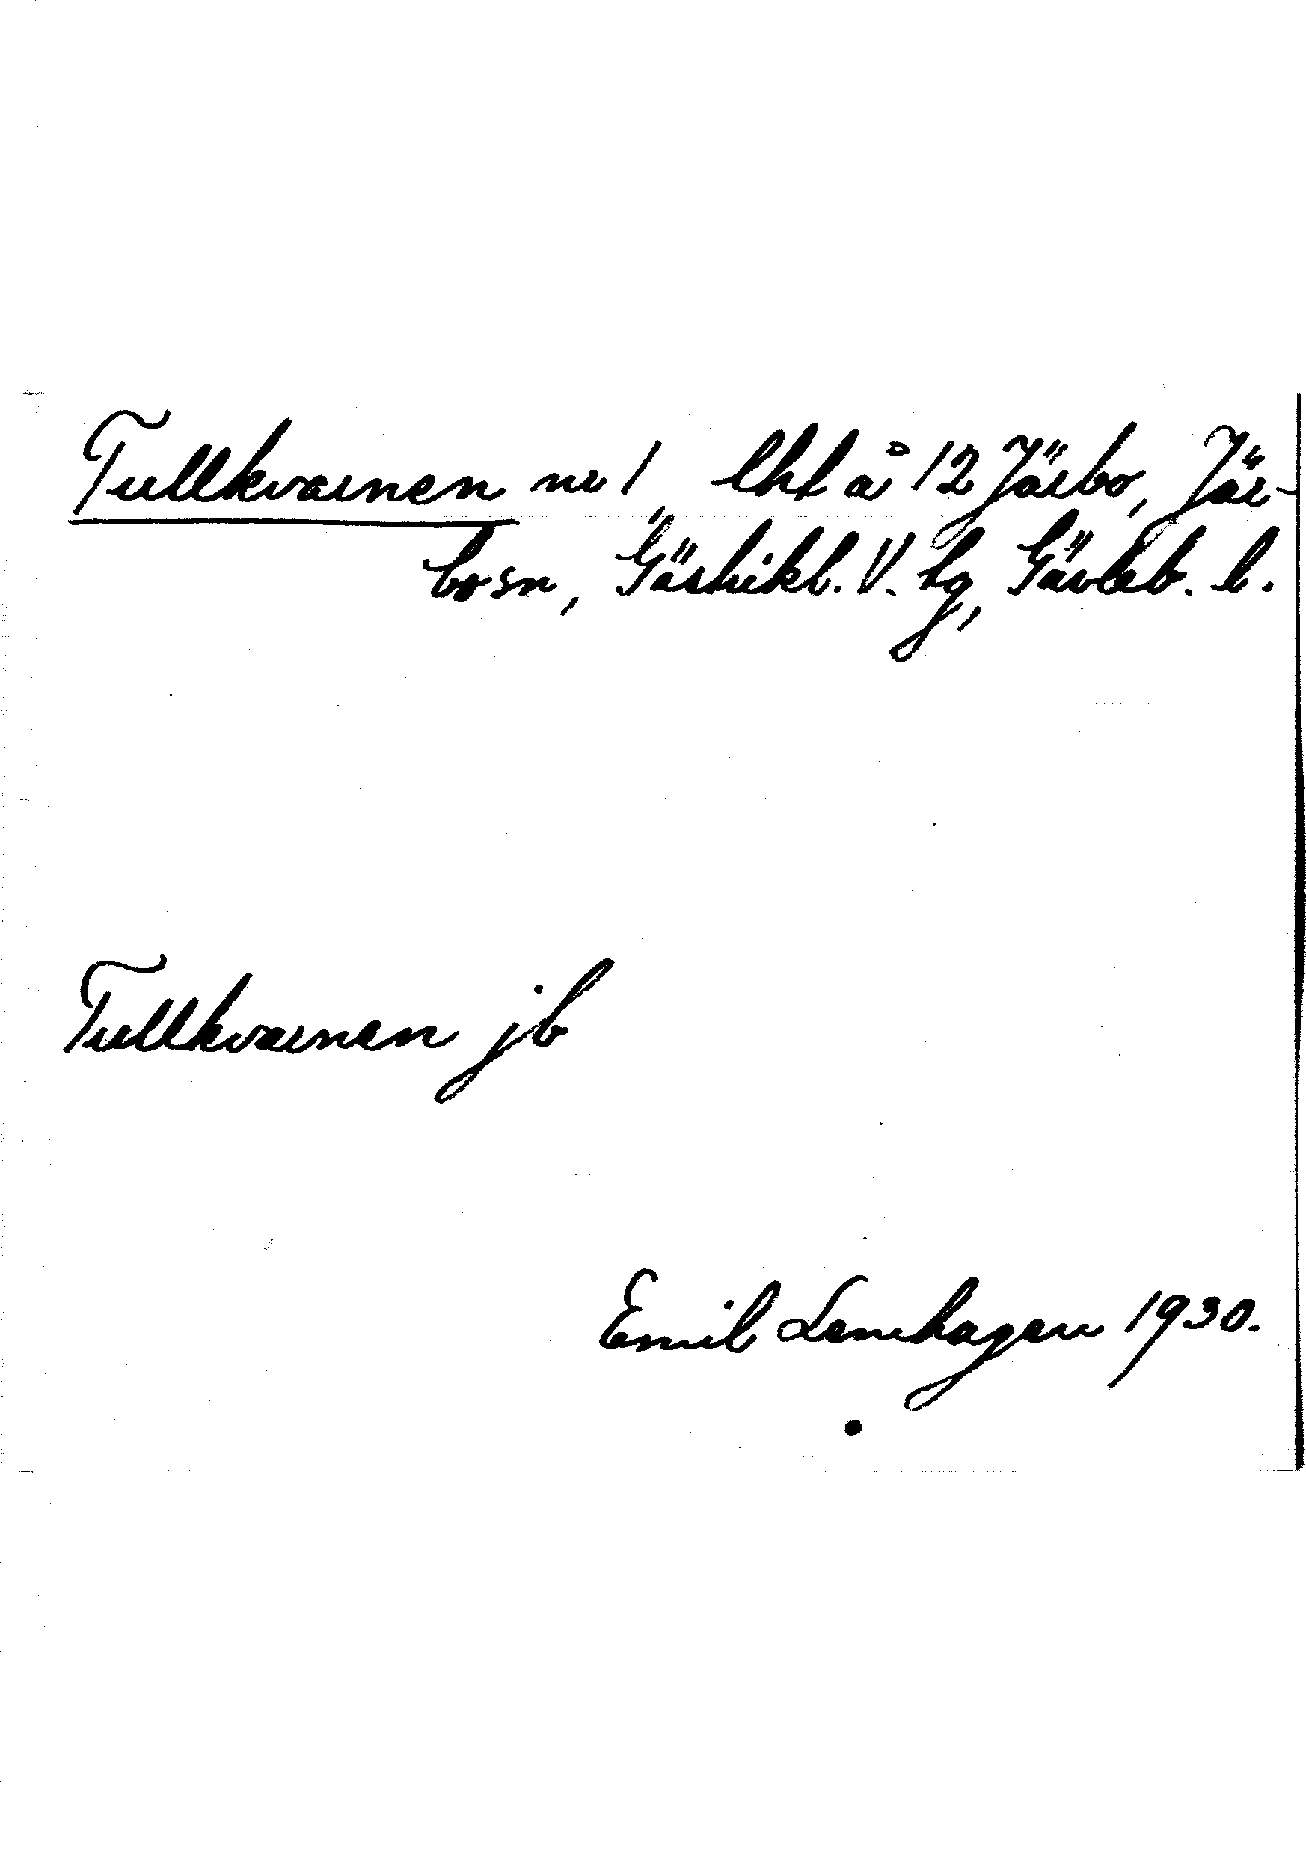 Tullkvarnen nr 1, lht å 12 Järbo, Jär-
bo sn, Gästrikl. V. tg, Gävleb. l.
Tullkvarnen jb
Emil Lenhagen 1930.